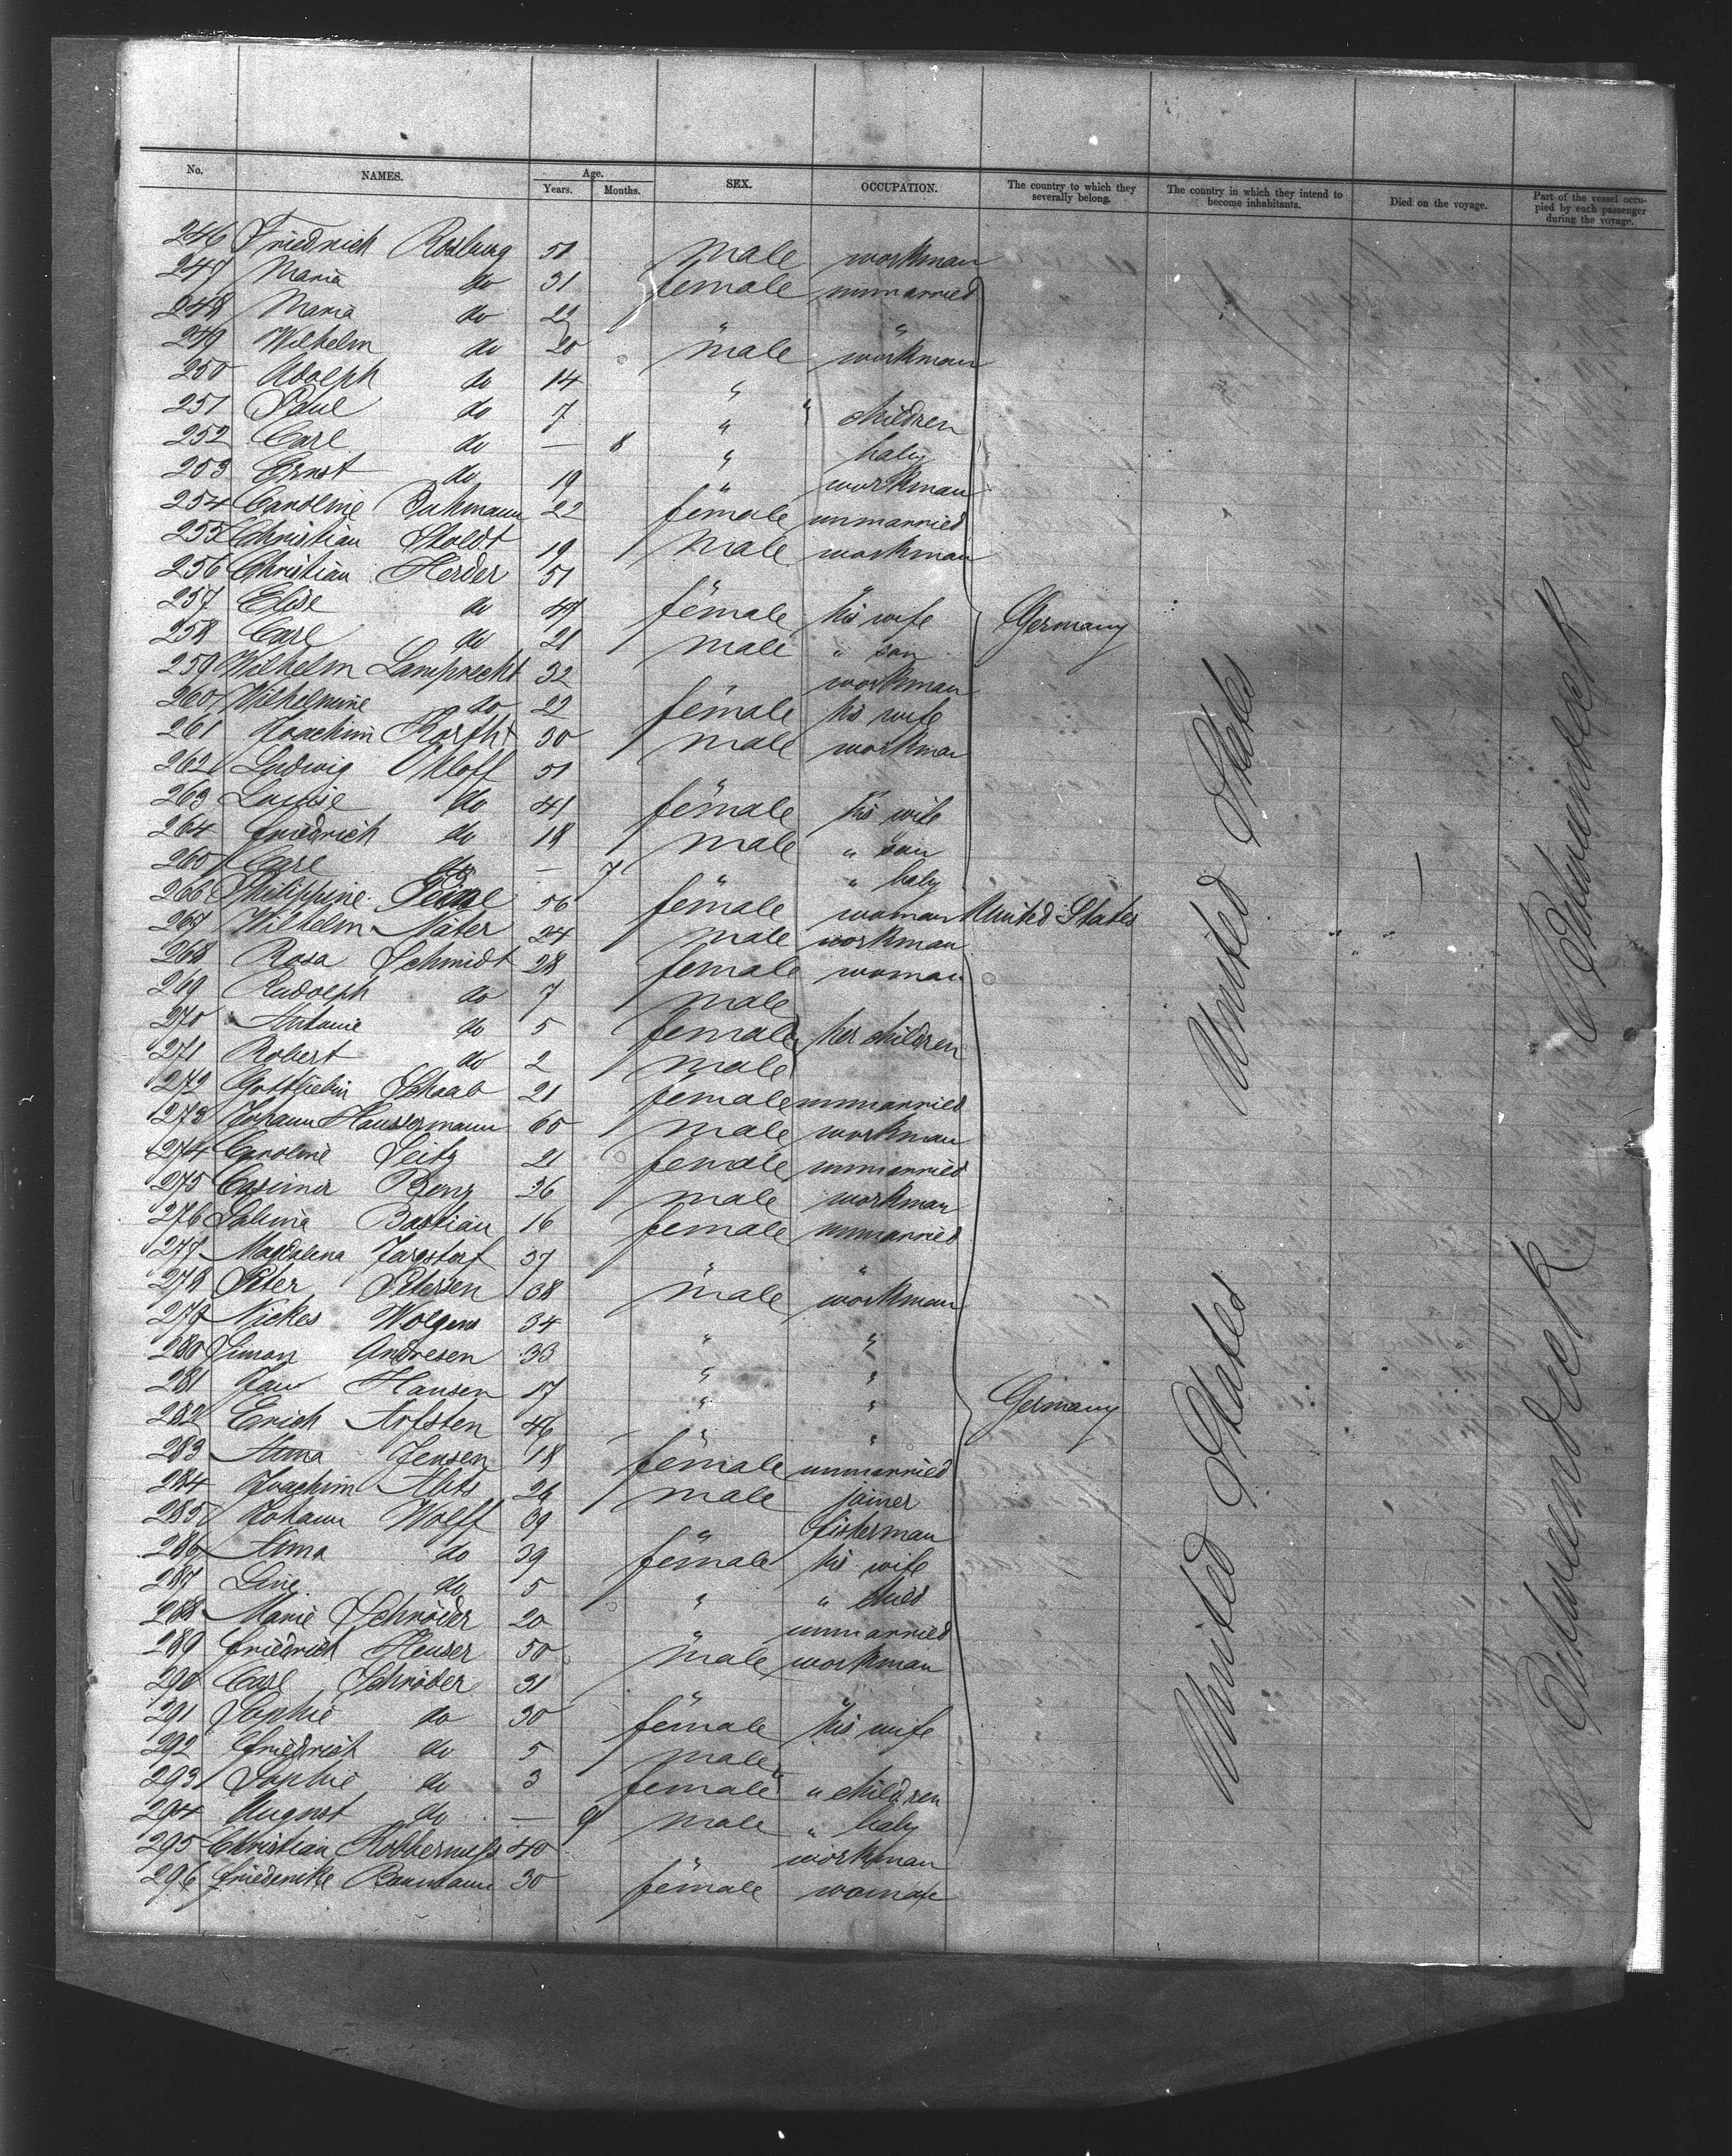 No. NAMES. Age. Years. Months. SEX. OCCUPATION. The country to which they severally belong. The country in which they intend to become inhabitants. Died on the voyage. Part of the vessel occupied by each passenger during the voyage.
246 Friedrich 51 male workman
247 Maria do 31 female unmarried
248 Maria do 22 " "
249 Wilhelm do 20 male workman
250 Adolph do 14 "
251 Paul do 7 " " children
252 Carl do — 8 " baby
253 Ernst do 19 " workman
254 Caroline 22 female unmarried
255 Christian Stoldt 19 male workman
256 Christian Herder 51 " "
257 Elise do female his wife Germany
258 Carl do 21 male " son
259 Wilhelm Lamprecht 32 " workman
260 Wilhelmine do 22 female his wife
261 Joachim 30 male workman
262 Ludwig 51 " "
263 Louise do 41 female his wife
264 Friedrich do 18 male " son
265 Carl do — 7 " " baby
266 Philippine 56 female woman United States
267 Wilhelm Näter 24 male workman
268 Rosa Schmidt 28 female woman
269 Rudolph do 7 male
270 Antonie do 5 female her children
271 Robert do 2 male
272 Gottliebin Schaab 21 female unmarried
273 Johann Haussermann 60 male workman
274 Caroline Seitz 21 female unmarried
275 Casimir Benz 26 male workman
276 Sabina Bastian 16 female unmarried
277 Magdalena Jargstorf 37 " "
278 Peter Petersen 38 male workman
279 Nickes 34 " "
280 Simon Andresen 33 " "
281 Hansen 17 " "
282 Erich Arfsten 46 " " Germany
283 Anna Jensen 18 female unmarried
284 Joachim male joiner
285 Johann Wolff 39 " fisherman
286 Anna do 39 female his wife
287 Line do 5 " " child
288 Marie Schröder 20 " unmarried
289 Friedrich Heuser 50 male workman
290 Carl Schröder 31 " "
291 Sophie do 30 female his wife
292 Friedrich do 5 male
293 Sophie do 3 female " children
294 August do — 9 male " baby
295 Christian 40 " workman
296 Friederike Baumann 30 female woman
United States
United States
—
Betweendeck
Betweendeck